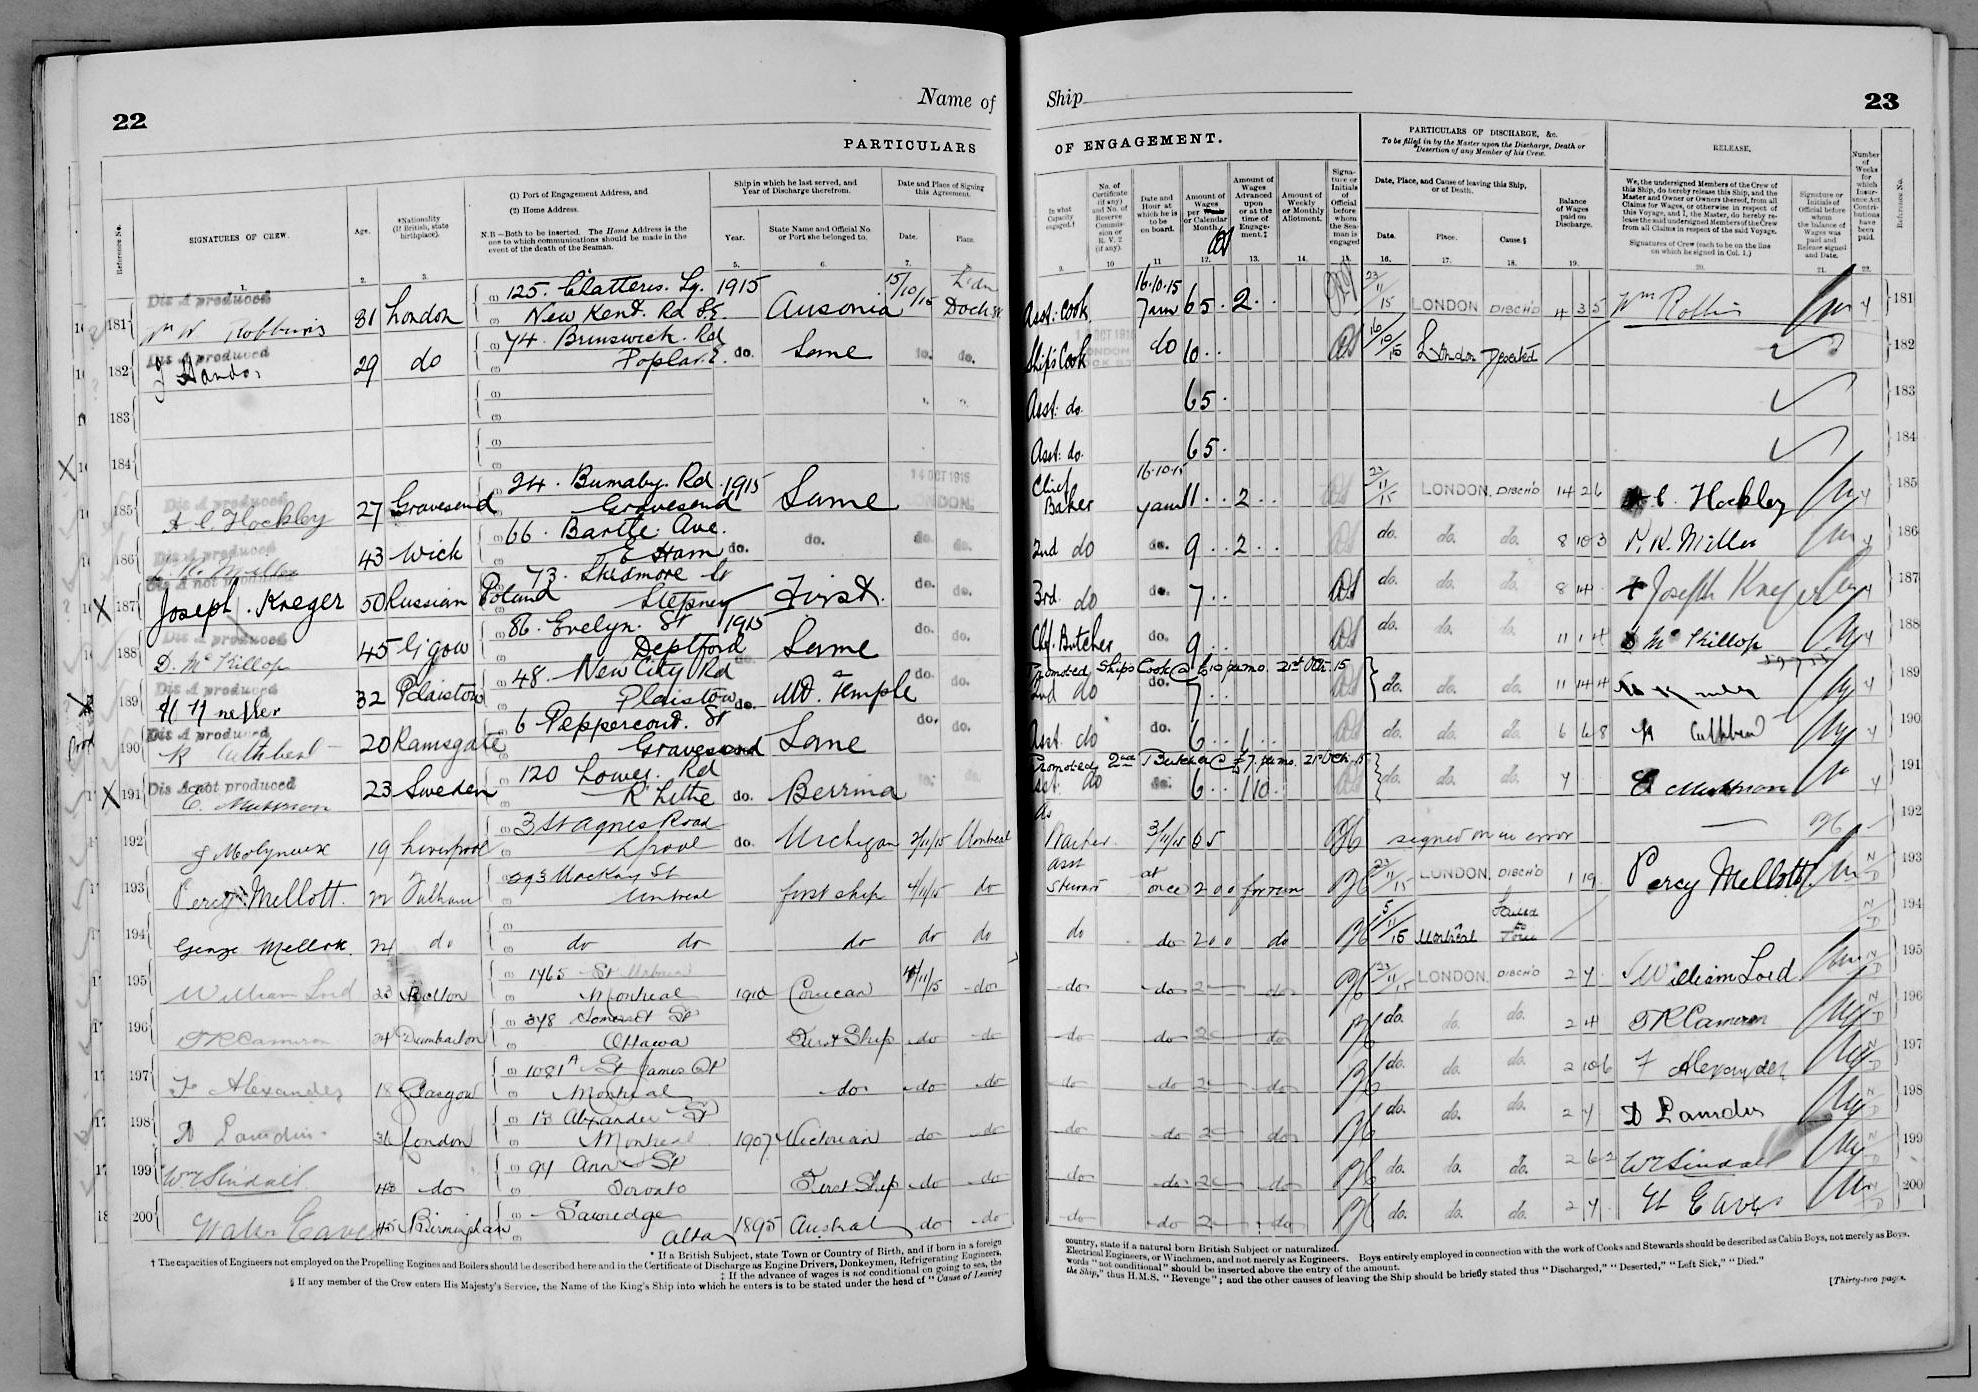 22
Name of
PARTICULARS
Reference No.
SIGNATURES OF CREW.
Age.
*Nationality (If British, state birthplace).
(1) Port of Engagement Address, and
(2) Home Address.
N.B.—Both to be inserted. The Home Address is the one to which communications should be made in the event of the death of the Seaman.
Ship in which he last served, and Year of Discharge therefrom.
Year.
State Name and Official No. or Port she belonged to.
Date and Place of Signing this Agreement.
Date.
Place.
1. 2. 3. 5. 6. 7.
Dis A produced
181 Wm W Robbins 31 London (1) 125. Clatteris. Sq. 1915 Ausonia 15/10/15
(2) New Kent. Rd S.E. Dock
Dis A produced
182 29 do (1) 74. Brunswick. Rd
(2) Poplar. E. do. Same do. do.
183 (1)
(2)
184 (1)
(2)
Dis A produced
185 A C Hockley 27 Gravesend (1) 24. Burnaby. Rd 1915 Same 14 OCT 1915
(2) Gravesend LONDON.
Dis A produced
186 Miller 43 Wick (1) 66. Bartle. Ave.
(2) E Ham do. do. do. do.
Dis A not produced
187 Joseph. Kreger 50 Russian Poland (1) 73. Skidmore St
(2) Stepney First. do. do.
Dis A produced
188 D. McKillop 45 Glgow (1) 86. Evelyn. St 1915 Same do. do.
(2) Deptford
Dis A produced
189 32 Plaistow (1) 48. New City Rd
(2) Plaistow do. Mt. Temple do. do.
Dis A produced
190 R Cuthbert 20 Ramsgate (1) 6 Peppercourt. St
(2) Gravesend Same do. do.
Dis A not produced
191 23 Sweden (1) 120 Lower. Rd
(2) R'hithe do. Berrima do. do.
192 J Molyneux 19 Liverpool (1) 3 St Agnes Road
(2) L'pool do. Michigan 3/11/15 Montreal
193 Percy Mellott. 22 Fulham (1) 293 Mackay St
(2) Montreal first ship 4/11/15 do
194 George Mellott. 24 do (1)
(2) do do do do do
195 William Lord 23 Bolton (1) 1465 St Urbain
(2) Montreal 1910 Corican 4/11/15 do
196 T R Cameron 34 Dumbarton (1) 348 Somerset St
(2) Ottawa First Ship do do
197 F Alexander 18 Glasgow (1) 1081A St James St
(2) Montreal do do do
198 36 London (1) 18 Alexander St
(2) Montreal 1907 Victorian do do
199 Wm Sindall 43 do (1) 94 Ann St
(2) Toronto First Ship do do
200 Walter Eaves 45 Birmingham (1)
(2) Alta 1895 Austral do do
* If a British Subject, state Town or Country of Birth, and if born in a foreign
† The capacities of Engineers not employed on the Propelling Engines and Boilers should be described here and in the Certificate of Discharge as Engine Drivers, Donkeymen, Refrigerating Engineers,
‡ If the advance of wages is not conditional on going to sea, the
§ If any member of the Crew enters His Majesty's Service, the Name of the King's Ship into which he enters is to be stated under the head of "Cause of Leaving
Ship
23
OF ENGAGEMENT.
PARTICULARS OF DISCHARGE, &c.
To be filled in by the Master upon the Discharge, Death or Desertion of any Member of his Crew.
RELEASE.
In what Capacity engaged.†
No. of Certificate (if any) and No. of Reserve Commission or R. V. 2 (if any).
Date and Hour at which he is to be on board.
Amount of Wages per Week or Calendar Month.
Amount of Wages Advanced upon or at the time of Engagement.‡
Amount of Weekly or Monthly Allotment.
Signature or Initials of Official before whom the Seaman is engaged
Date, Place, and Cause of leaving this Ship, or of Death.
Date.
Place.
Cause.§
Balance of Wages paid on Discharge.
We, the undersigned Members of the Crew of this Ship, do hereby release this Ship, and the Master and Owner or Owners thereof, from all Claims for Wages, or otherwise in respect of this Voyage, and I, the Master, do hereby release the said undersigned Members of the Crew from all Claims in respect of the said Voyage.
Signatures of Crew (each to be on the line on which he signed in Col. 1.)
Signature or Initials of Official before whom the balance of Wages was paid and Release signed and Date.
Number of Weeks for which Insurance Act Contributions have been paid.
Reference No.
9. 10 11 12. 13. 14. 15. 16. 17. 18. 19. 20. 21. 22.
Asst. Cook 16.10.15 7am 65. 2.. 23/11/15 LONDON DISCH'D 4 3 5 Wm Robbins 4 181
Ship's Cook do 10.. 16/10/15 London Deserted 182
Asst. do. 65. 183
Asst. do. 65. 184
Chief Baker 16.10.15 7am 11.. 2.. 23/11/15 LONDON. DISCH'D 14 2 6 A C. Hockley 4 185
2nd do do. 9.. 2.. do. do. do. 8 10 3 Miller 4 186
3rd. do do. 7.. do. do. do. 8 14. Joseph Kreger 4 187
Chf. Butcher do. 9.. do. do. do. 11 1 4 D McKillop 4 188
Promoted Ships Cook @ £10 per mo. 21st Oct. 15
2nd do do. 7.. do. do. do. 11 14 4 4 189
Asst do do. 6.. 1.. do. do. do. 6 6 8 R Cuthbert 4 190
Promoted 2nd Butcher @ £7. per mo. 21st Oct. 15
Asst. do do. 6.. 1 10. do. do. do. 4 191
3/11/15 65 signed on in error 192
Asst Steward at once 200 for run 23/11/15 LONDON. DISCH'D 1 19. Percy Mellott 193
do do 200 do 5/11/15 Montreal Failed to Join 194
do do 2 do 23/11/15 LONDON. DISCH'D 2 4. William Lord 195
do do 2 do do. do. do. 2 4 T R Cameron 196
do do 2 do do. do. do. 2 10 6 F Alexander 197
do do 2 do do. do. do. 2 4 198
do do 2 do do. do. do. 2 6 2 Wm Sindall 199
do do 2 do do. do. do. 2 4. W Eaves 200
country, state if a natural born British Subject or naturalized.
Electrical Engineers, or Winchmen, and not merely as Engineers. Boys entirely employed in connection with the work of Cooks and Stewards should be described as Cabin Boys, not merely as Boys.
words "not conditional" should be inserted above the entry of the amount.
the Ship," thus H.M.S. "Revenge"; and the other causes of leaving the Ship should be briefly stated thus "Discharged," "Deserted," "Left Sick," "Died."
[Thirty-two pages.